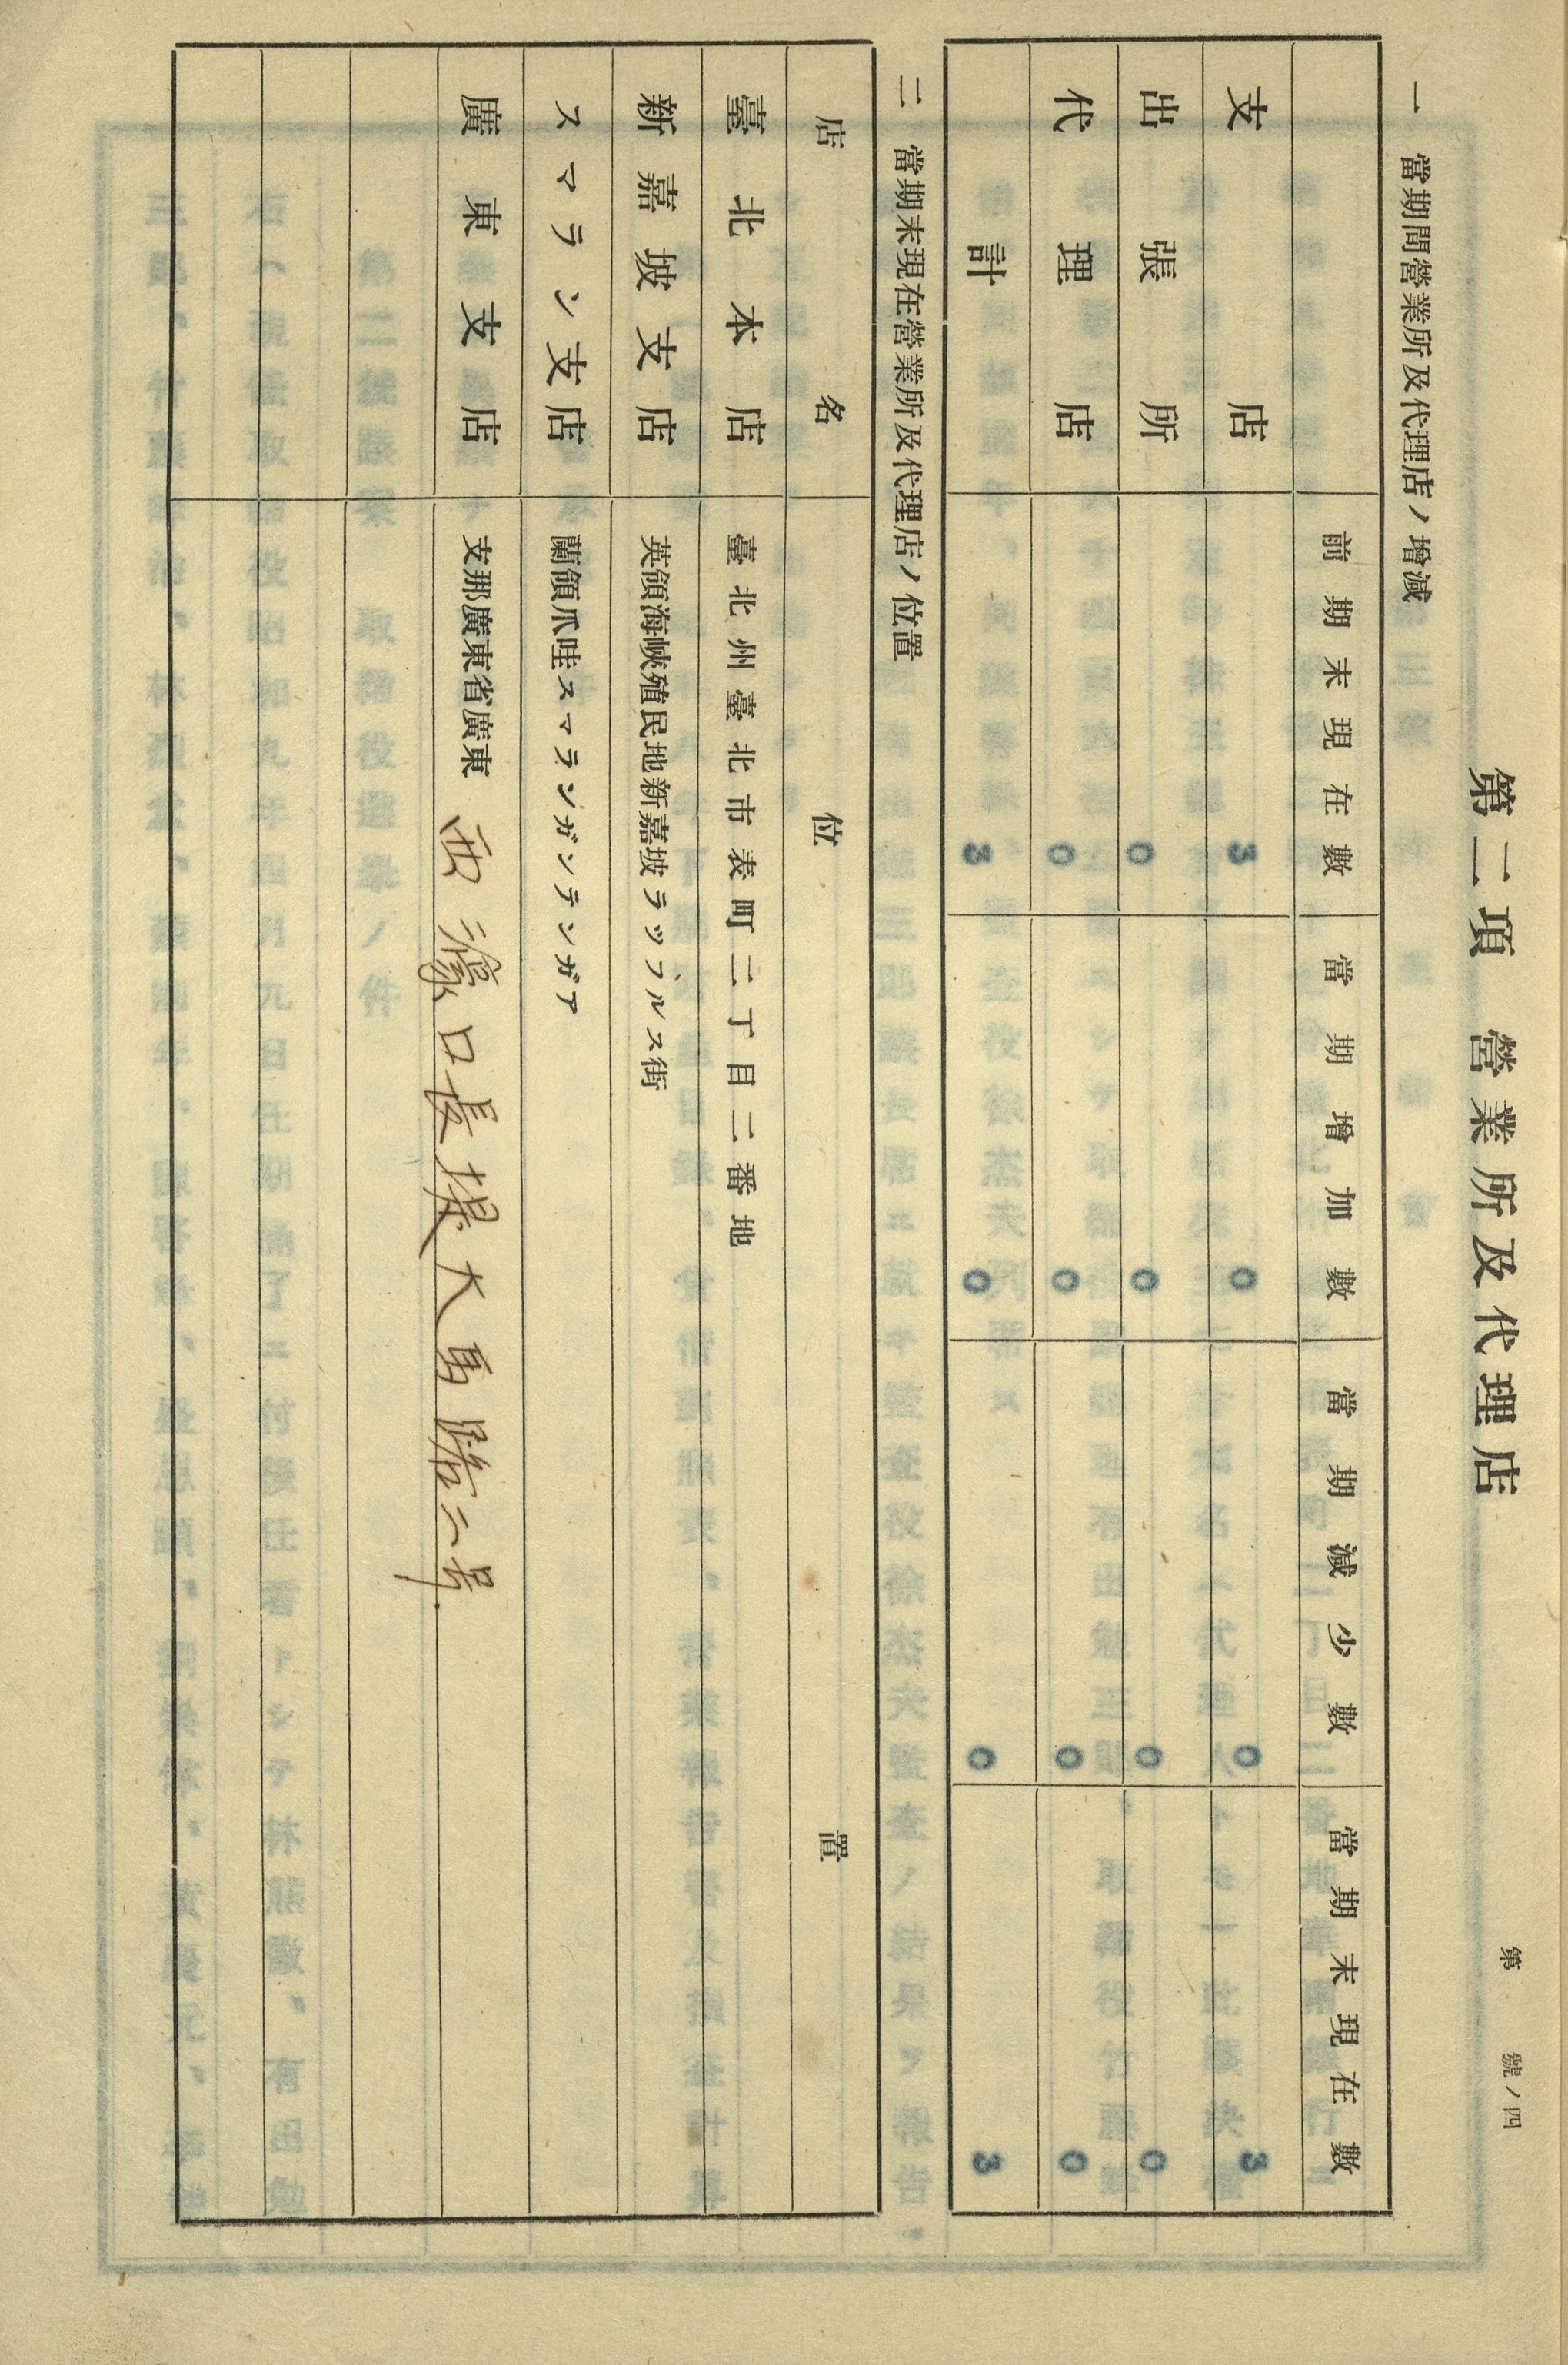 第　號ノ四
第二項　營業所及代理店
一　當期間營業所及代理店ノ增減
前期末現在數　當期增加數　當期減少數　當期末現在數
支店　3　0　0　3
出張所　0　0　0　0
代理店　0　0　0　0
計　3　0　0　3
二　當期末現在營業所及代理店ノ位置
店名　位置
臺北本店　臺北州臺北市表町二丁目二番地
新嘉坡支店　英領海峽殖民地新嘉坡ラッフルス街
スマラン支店　蘭領爪哇スマランガンテンガア
廣東支店　支那廣東省廣東　西濠口長堤大馬路二号